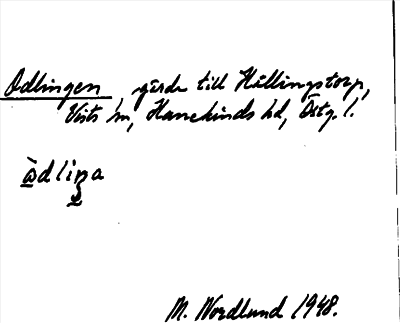 Odlingen, gärde till Hällingstorp,
Vists sn, Hanekinds hd, Östg. l.
àdliŋa
M. Nordlund 1948.